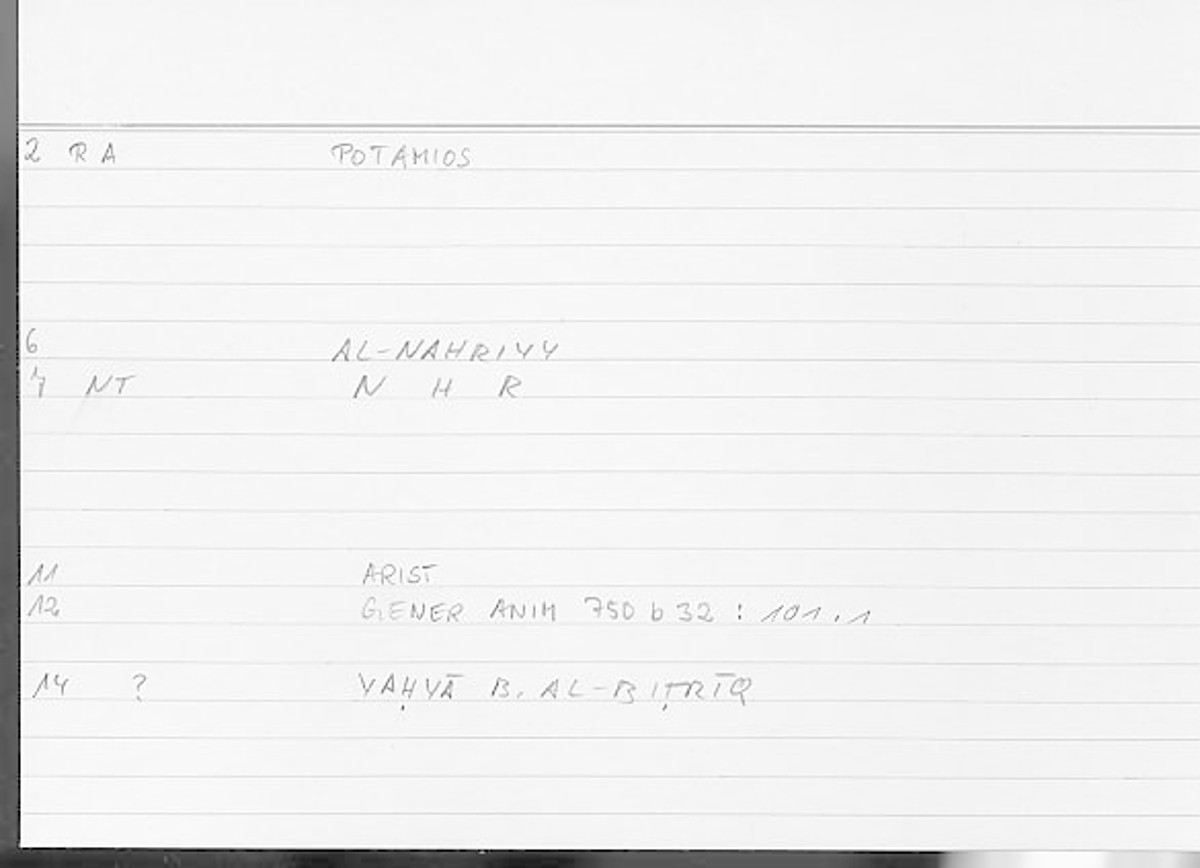 2 R A POTAMIOS
6 AL-NAHRIYY
7 NT N H R
11 ARIST
12 GENER ANIM 750 b 32 : 101.1
14 ? YAḤYĀ B. AL-BIṬRĪQ